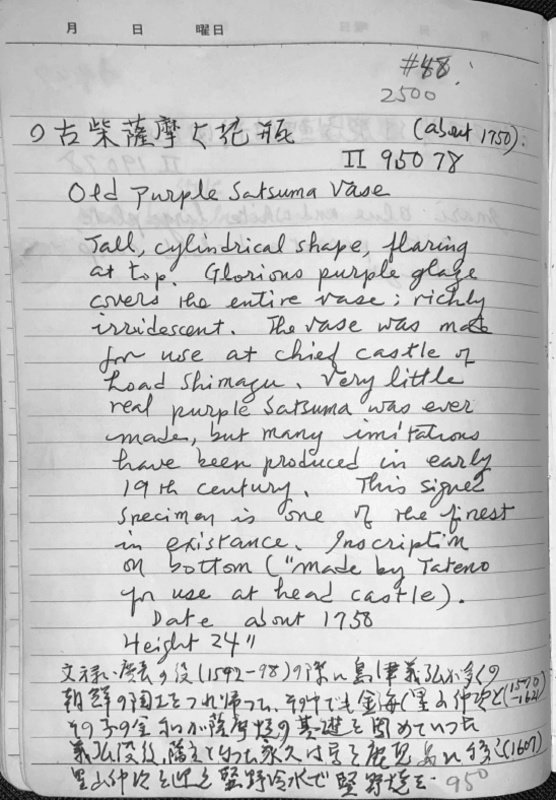 月 日 曜日
#48
2500
古柴薩摩 花瓶 (about 1750).
II 950 78
Old Purple Satsuma Vase
Tall, cylindrical shape, flaring
at top. Glorious purple glaze
covers the entire vase; richly
irridescent. The vase was made
for use at chief castle of
Load Shimazu. Very little
real purple Satsuma was ever
made, but many imitations
have been produced in early
19th century. This signed
specimen is one of the finest
in existance. Inscription
on bottom ("made by Tateno
for use at head castle).
Date about 1750
Height 24"
文禄、慶長の役(1592-98)の際に島津義弘が多くの
朝鮮の陶工をつれ帰った、その中でも金海(星山仲次と
その子の金和が薩摩焼の基礎を固めていった
義弘没後、藩主となった家久は 鹿児島に移 (1607)
星山仲次を 竪野冷水で竪野焼を
950